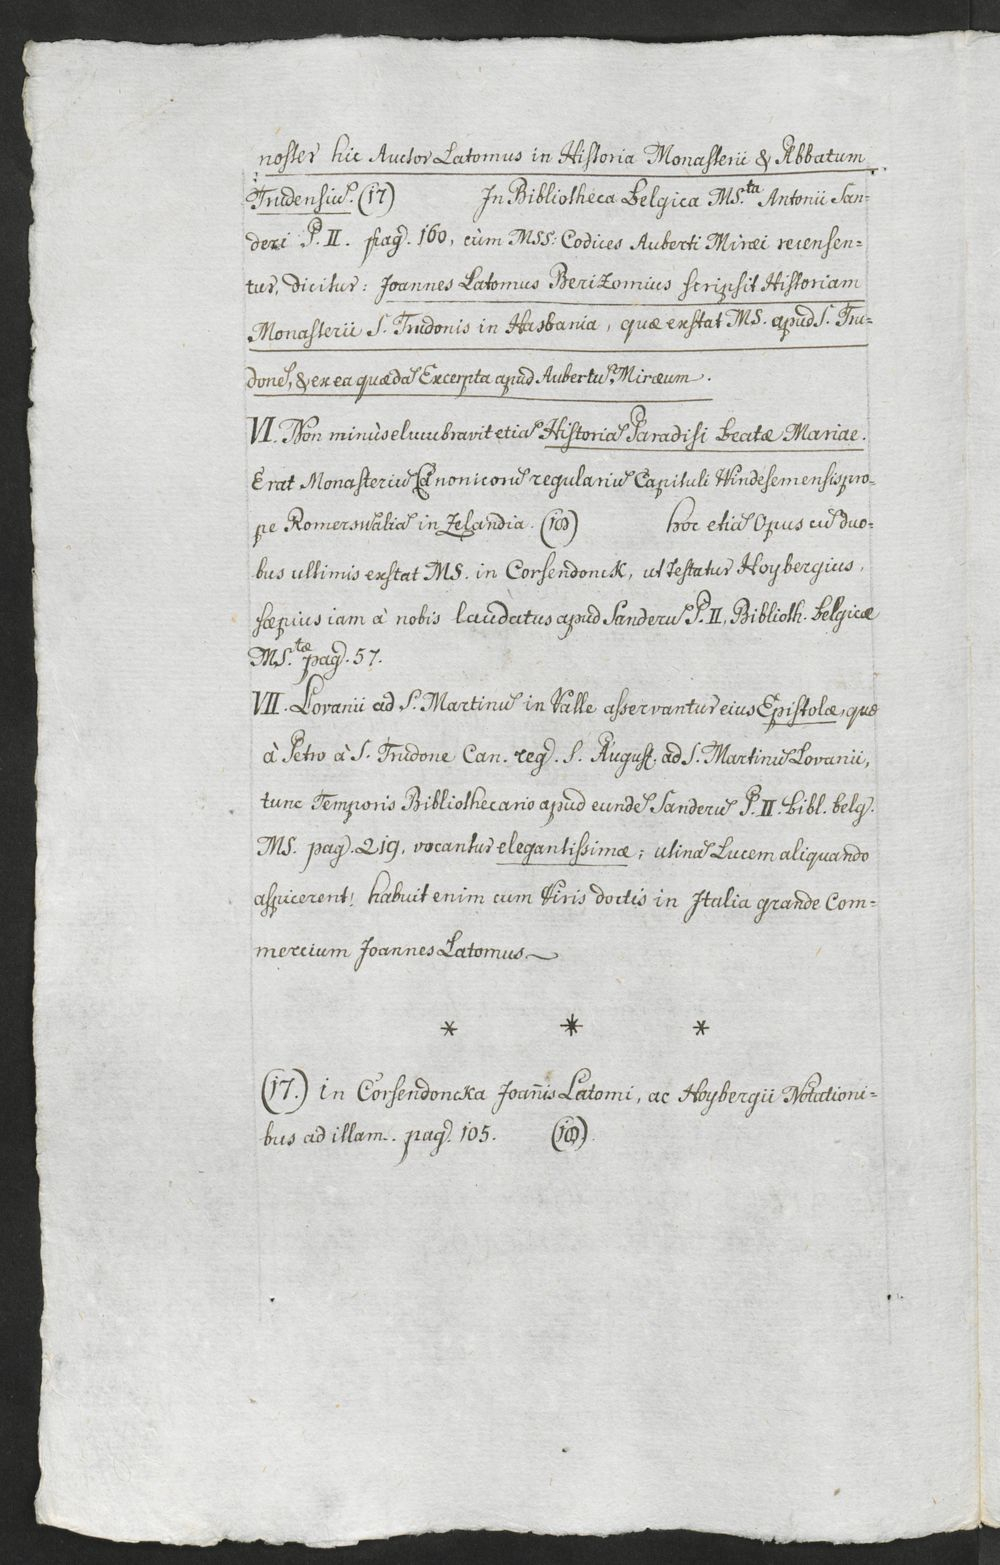 noster hic Auctor Latomus in Historia Monasterii & Abbatum
Trudensiu̅. (17) In Bibliotheca Belgica MS.ta Antonii San=
deri P. II. pag. 160, cùm MSS: Codices Auberti Miræi recensen=
tur, dicitur: Joannes Latomus Berizomius scripsit Historiam
Monasterii S. Trudonis in Hasbania, quæ exstat MS. apud S. Tru=
done̅, & ex ea quæda̅ Excerpta apud Aubertu̅ Miræum.
VI. Non minùs elucubravit etia̅ Historia̅ Paradisi Beatæ Mariae.
Erat Monasteriu̅ Canonicoru̅ regulariu̅ Capituli Windesemensis pro=
pe Romerswalia̅ in Zelandia. (18) hoc etia̅ Opus cu̅ duo=
bus ultimis exstat MS. in Corsendonck, ut testatur Hoybergius,
sæpius iam à nobis laudatus apud Sanderu̅ P. II. Biblioth. Belgicæ
MS.tæ pag. 57.
VII. Lovanii ad S. Martinu̅ in Valle asservantur eius Epistolæ, quæ
à Petro à S. Trudone Can. reg. S. August. ad S. Martinu̅ Lovanii,
tunc Temporis Bibliothecario apud eunde̅ Sanderu̅ P. II. Bibl. belg.
MS. pag. 219, vocantur elegantissimæ; utina̅ Lucem aliquando
aspicerent! habuit enim cum Viris doctis in Italia grande Com=
mercium Joannes Latomus.
* * *
(17.) in Corsendoncka Joan̅is Latomi, ac Hoybergii Notationi=
bus ad illam. pag. 105. (18)